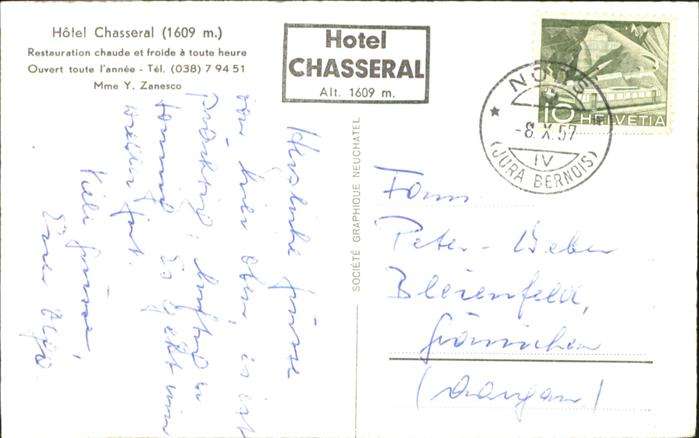 Hôtel Chasseral (1609 m.)
Restauration chaude et froide à toute heure
Ouvert toute l'année - Tél. (038) 7 94 51
Mme Y. Zanesco
Hotel
CHASSERAL
Alt. 1609 m.
NODS
-8.X.57
IV
(JURA BERNOIS)
10 HELVETIA
SOCIÉTÉ GRAPHIQUE NEUCHATEL
Herzliche Grüsse
von hier oben, es ist
prächtig,
Es geht
weiter fort.
Viele Grüsse,
Fam.
Peter-Weber
Bleienfeld,
Gränichen
(Aargau)